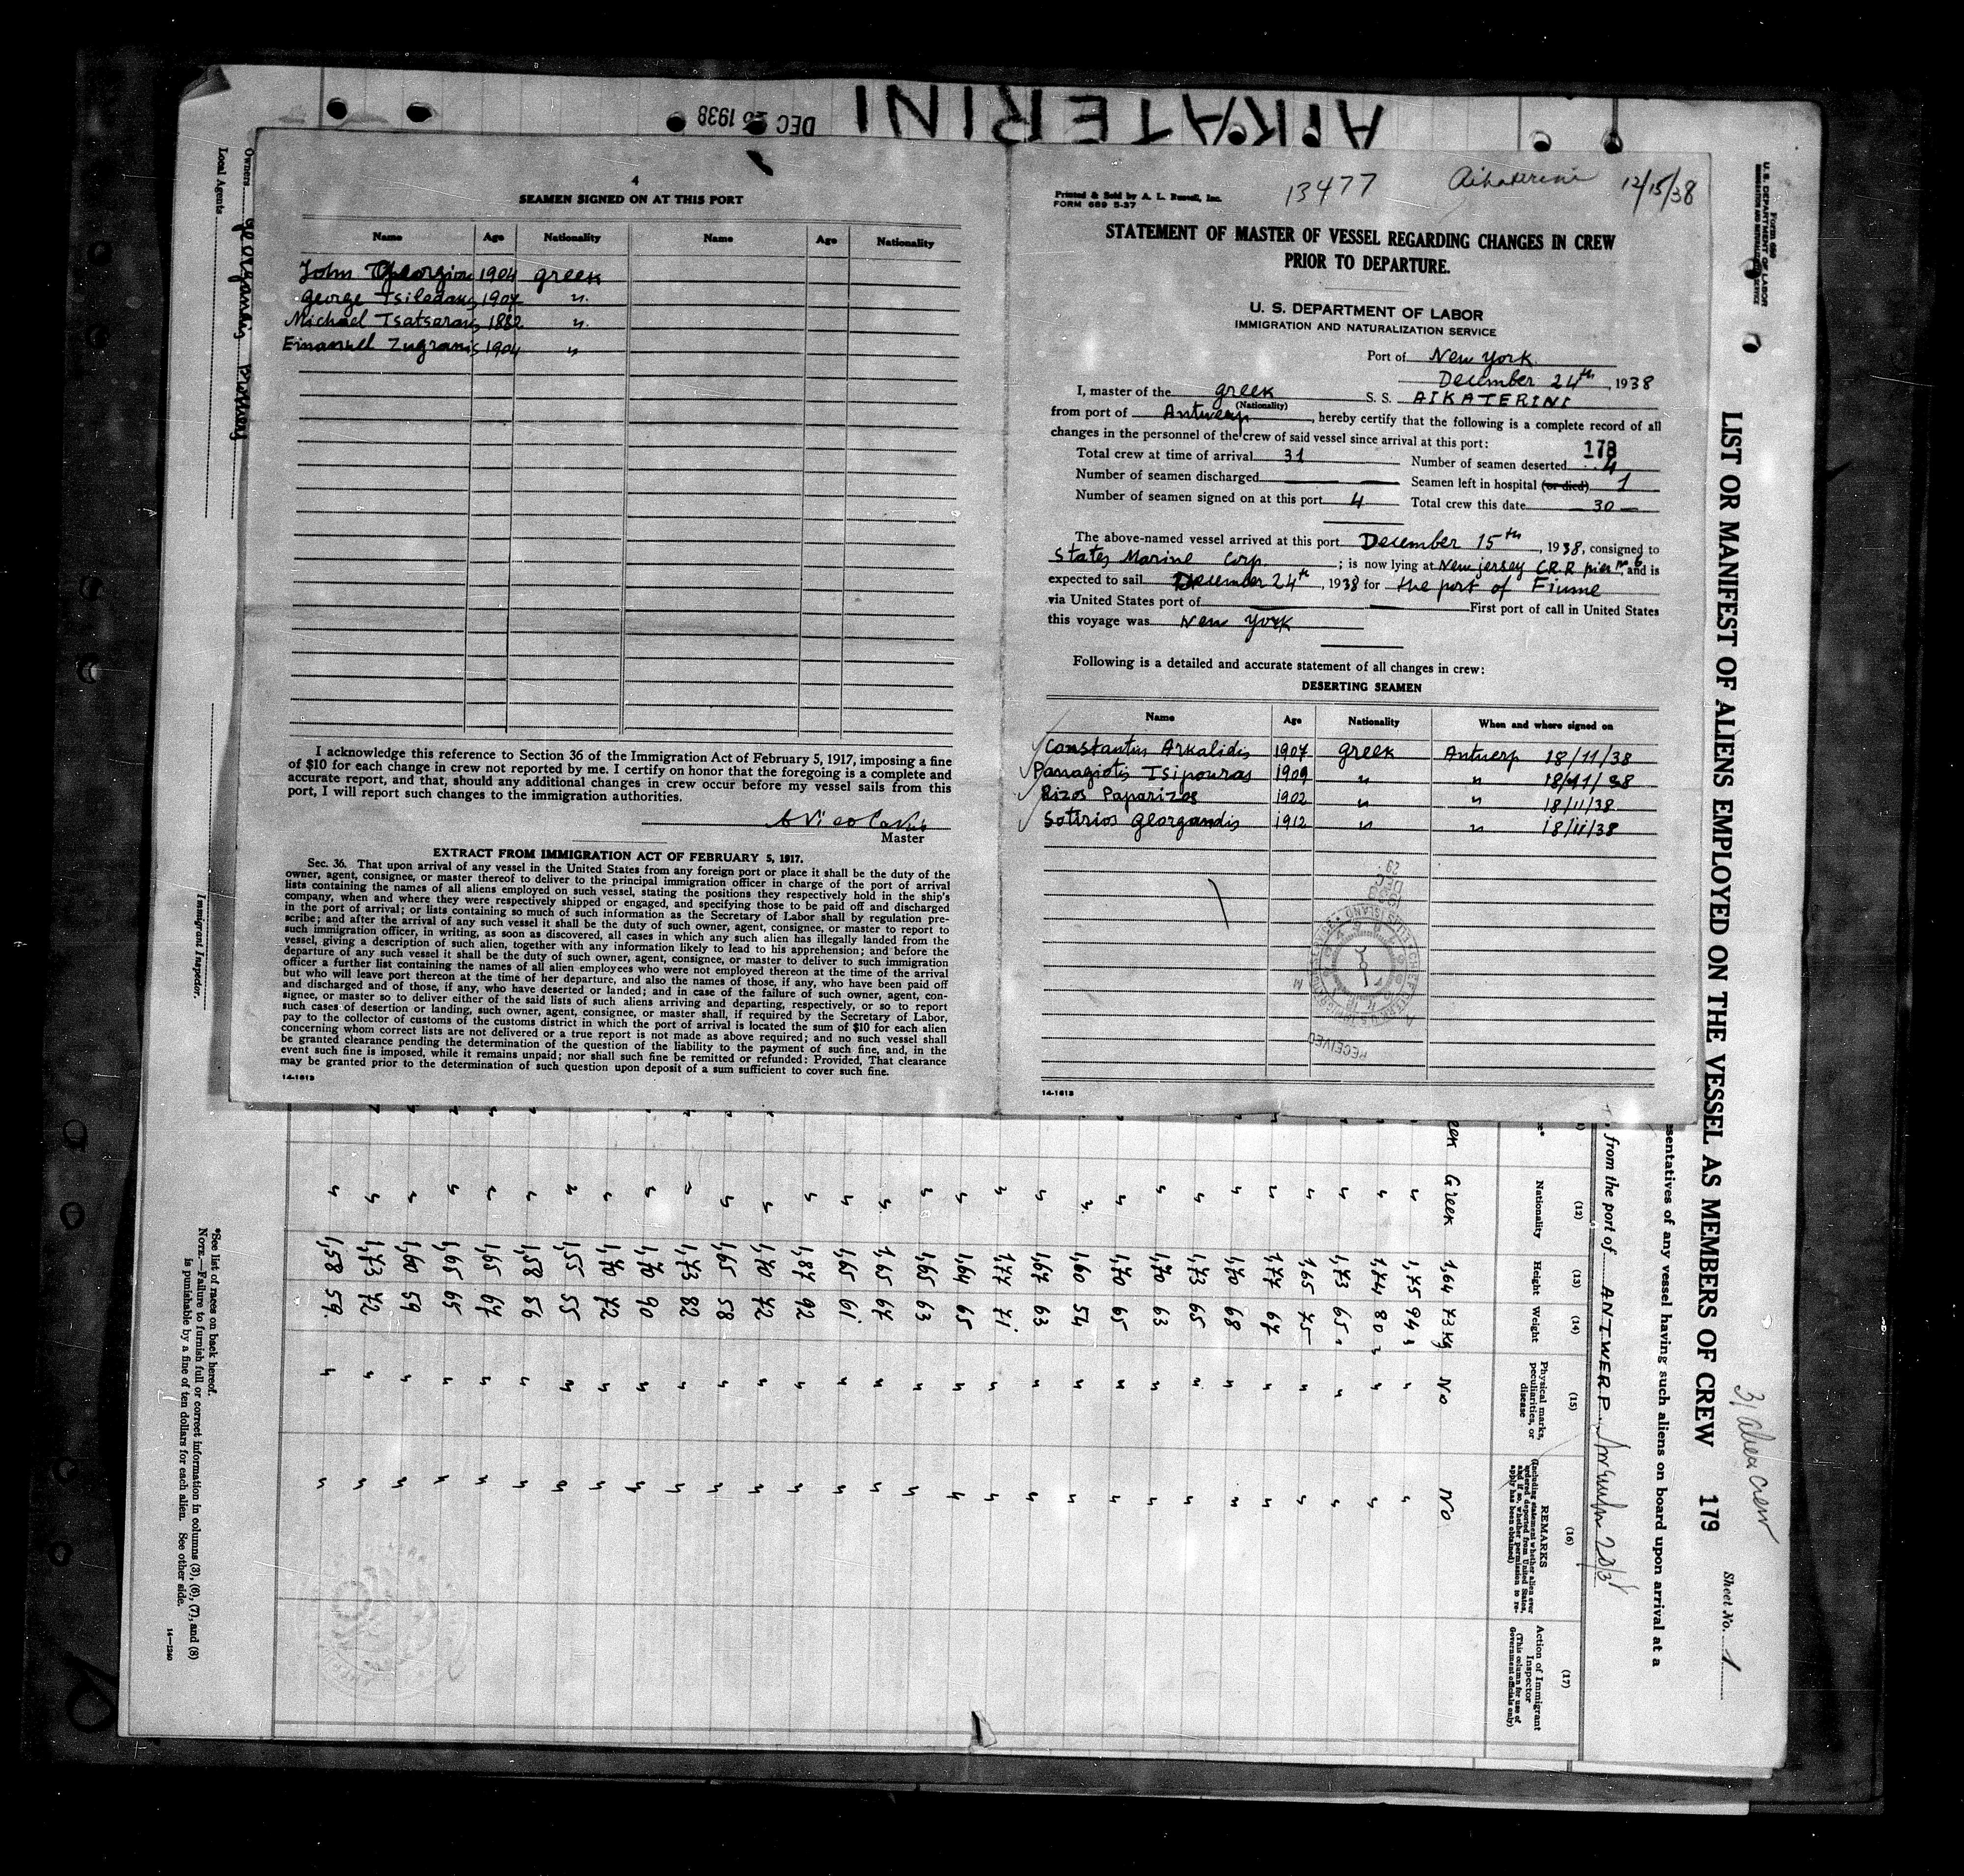 AIKATERINI
DEC 1938
4
SEAMEN SIGNED ON AT THIS PORT
Name Age Nationality Name Age Nationality
John Georgiou 1904 greek
george 1907 "
Michael 1882 "
Emanuel 1904 "
I acknowledge this reference to Section 36 of the Immigration Act of February 5, 1917, imposing a fine
of $10 for each change in crew not reported by me. I certify on honor that the foregoing is a complete and
accurate report, and that, should any additional changes in crew occur before my vessel sails from this
port, I will report such changes to the immigration authorities.
Master
EXTRACT FROM IMMIGRATION ACT OF FEBRUARY 5, 1917.
Sec. 36. That upon arrival of any vessel in the United States from any foreign port or place it shall be the duty of the
owner, agent, consignee, or master thereof to deliver to the principal immigration officer in charge of the port of arrival
lists containing the names of all aliens employed on such vessel, stating the positions they respectively hold in the ship's
company, when and where they were respectively shipped or engaged, and specifying those to be paid off and discharged
in the port of arrival; or lists containing so much of such information as the Secretary of Labor shall by regulation pre-
scribe; and after the arrival of any such vessel it shall be the duty of such owner, agent, consignee, or master to report to
such immigration officer, in writing, as soon as discovered, all cases in which any such alien has illegally landed from the
vessel, giving a description of such alien, together with any information likely to lead to his apprehension; and before the
departure of any such vessel it shall be the duty of such owner, agent, consignee, or master to deliver to such immigration
officer a further list containing the names of all alien employees who were not employed thereon at the time of the arrival
but who will leave port thereon at the time of her departure, and also the names of those, if any, who have been paid off
and discharged and of those, if any, who have deserted or landed; and in case of the failure of such owner, agent, con-
signee, or master so to deliver either of the said lists of such aliens arriving and departing, respectively, or so to report
such cases of desertion or landing, such owner, agent, consignee, or master shall, if required by the Secretary of Labor,
pay to the collector of customs of the customs district in which the port of arrival is located the sum of $10 for each alien
concerning whom correct lists are not delivered or a true report is not made as above required; and no such vessel shall
be granted clearance pending the determination of the question of the liability to the payment of such fine, and, in the
event such fine is imposed, while it remains unpaid; nor shall such fine be remitted or refunded: Provided, That clearance
may be granted prior to the determination of such question upon deposit of a sum sufficient to cover such fine.
14-1613
Printed & Sold by A. L. Russell, Inc.
FORM 689 5-37
13477 Aikaterini 12/15/38
STATEMENT OF MASTER OF VESSEL REGARDING CHANGES IN CREW
PRIOR TO DEPARTURE.
U. S. DEPARTMENT OF LABOR
IMMIGRATION AND NATURALIZATION SERVICE
Port of New York
December 24th, 1938
I, master of the greek S. S. AIKATERINI
(Nationality)
from port of Antwerp, hereby certify that the following is a complete record of all
changes in the personnel of the crew of said vessel since arrival at this port:
178
Total crew at time of arrival 31 Number of seamen deserted 4
Number of seamen discharged — — Seamen left in hospital (or died) 1
Number of seamen signed on at this port 4 Total crew this date 30
The above-named vessel arrived at this port December 15th, 1938, consigned to
States Marine Corp. ; is now lying at New jersey C.R.R pier , and is
expected to sail December 24th, 1938 for the port of Fiume
via United States port of — — First port of call in United States
this voyage was New York
Following is a detailed and accurate statement of all changes in crew:
DESERTING SEAMEN
Name Age Nationality When and where signed on
Constantin Arkalidis 1907 greek Antwerp 18/11/38
Panagiotis Tsipouras 1909 " " 18/11/38
Rizos Paparizos 1902 " " 18/11/38
Sotirios georgandis 1912 " " 18/11/38
RECEIVED
14-1613
Form 689
U. S. DEPARTMENT OF LABOR
IMMIGRATION AND NATURALIZATION SERVICE
LIST OR MANIFEST OF ALIENS EMPLOYED ON THE VESSEL AS MEMBERS OF CREW 179
31 alien crew
Sheet No. 1
sentatives of any vessel having such aliens on board upon arrival at a
, from the port of ANTWERP
(12) (13) (14) (15) (16) (17)
Nationality Height Weight Physical marks, peculiarities, or disease
REMARKS
(Including statement whether alien ever ordered deported from United States, and if so, whether permission to reapply has been obtained)
Action of Immigrant Inspector
(This column for use of Government officials only)
Greek 1,64 73 kg No No
" 1,75 94 " " "
" 1,74 80 " " "
" 1,73 65 " " "
" 1,65 75 " "
" 1,77 67 " "
" 1,70 68 " "
" 1,73 65 " "
" 1,70 63 " "
" 1,70 65 " "
" 1,60 54 " "
" 1,67 63 " "
" 1,77 71 " "
" 1,64 65 " "
" 1,65 63 " "
" 1,65 67 " "
" 1,65 61 " "
" 1,87 92 " "
" 1,70 72 " "
" 1,65 58 " "
" 1,73 82 " "
" 1,70 90 " "
" 1,70 72 " "
" 1,55 55 " "
" 1,58 56 " "
" 1,65 67 " "
" 1,65 65 " "
" 1,60 59 " "
" 1,73 72 " "
" 1,58 59 " "
*See list of races on back hereof.
NOTE.—Failure to furnish full or correct information in columns (3), (6), (7), and (8)
is punishable by a fine of ten dollars for each alien. See other side.
14—1240
Immigrant Inspector.
Owners georgandis
Local Agents